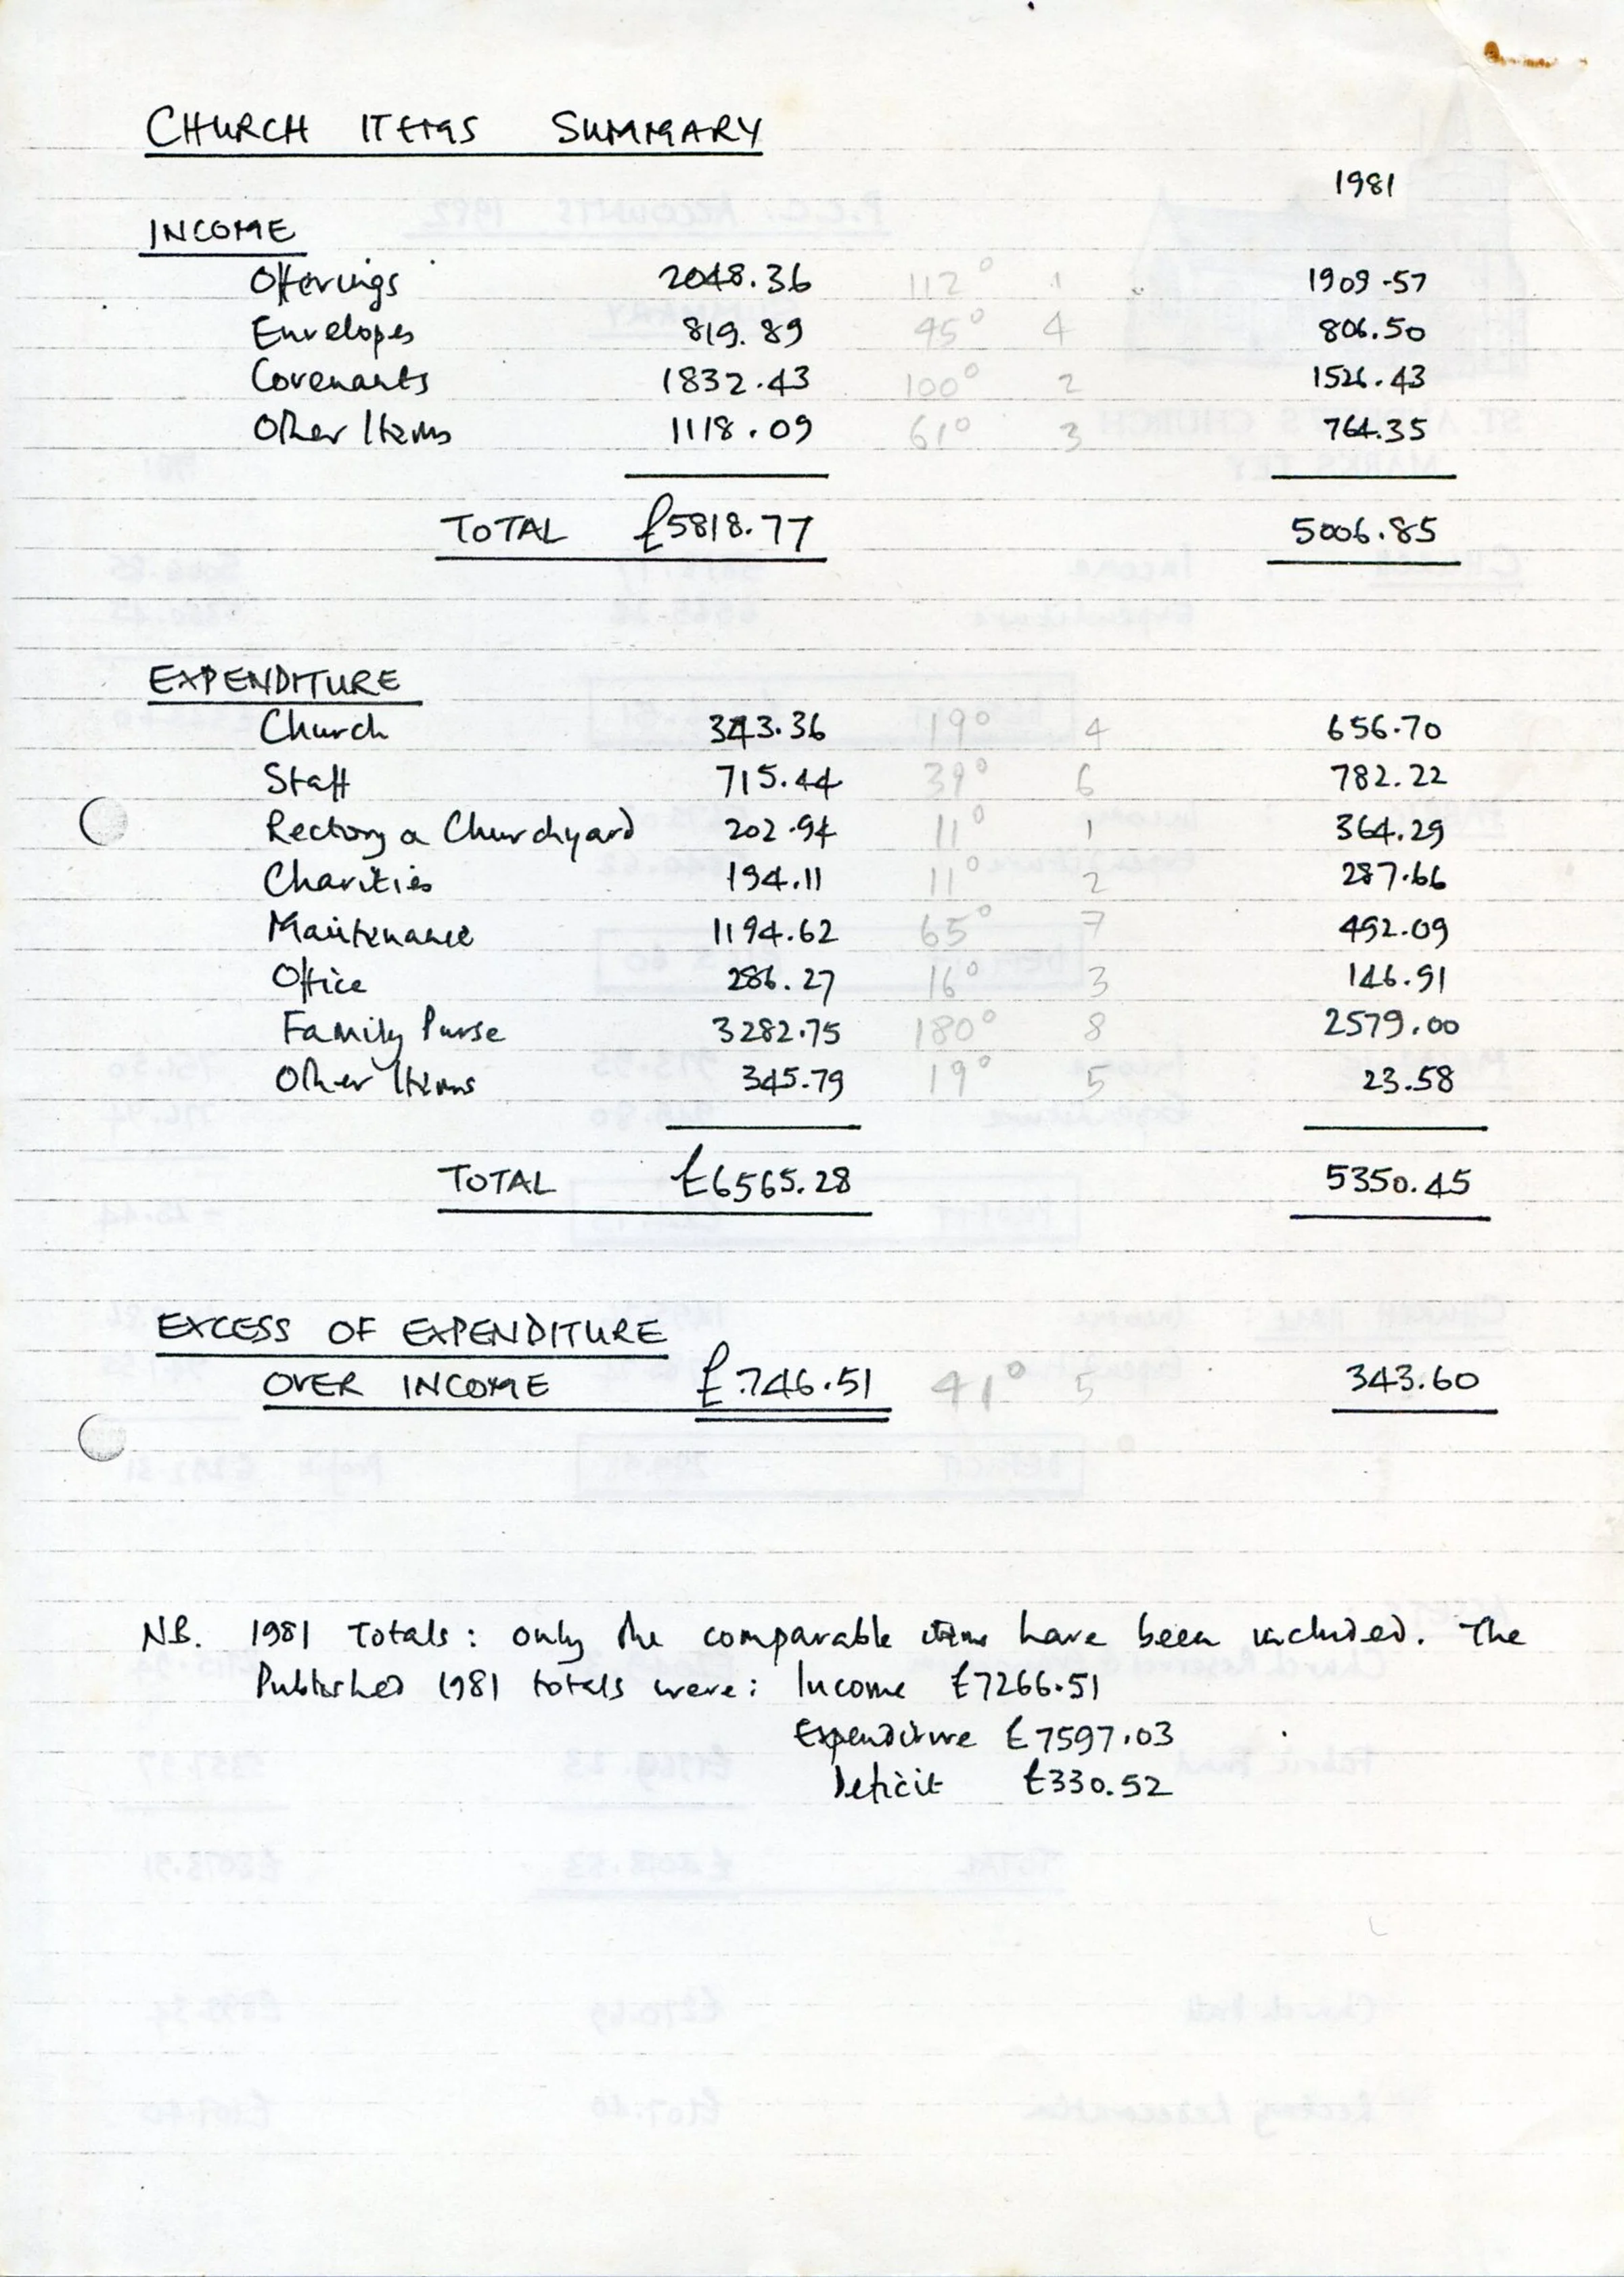 CHURCH ITEMS SUMMARY
1981
INCOME
Offerings 2048.36 112° 1 1909.57
Envelopes 819.89 45° 4 806.50
Covenants 1832.43 100° 2 1526.43
Other Items 1118.09 61° 3 764.35
TOTAL £5818.77 5006.85
EXPENDITURE
Church 343.36 19° 4 656.70
Staff 715.44 39° 6 782.22
Rectory & Churchyard 202.94 11° 1 364.29
Charities 194.11 11° 2 287.66
Maintenance 1194.62 65° 7 492.09
Office 286.27 16° 3 146.91
Family Purse 3282.75 180° 8 2579.00
Other Items 345.79 19° 5 23.58
TOTAL £6565.28 5350.45
EXCESS OF EXPENDITURE
OVER INCOME £746.51 41° 5 343.60
N.B. 1981 Totals: only the comparable items have been included. The
Published 1981 totals were: Income £7266.51
Expenditure £7597.03
Deficit £330.52